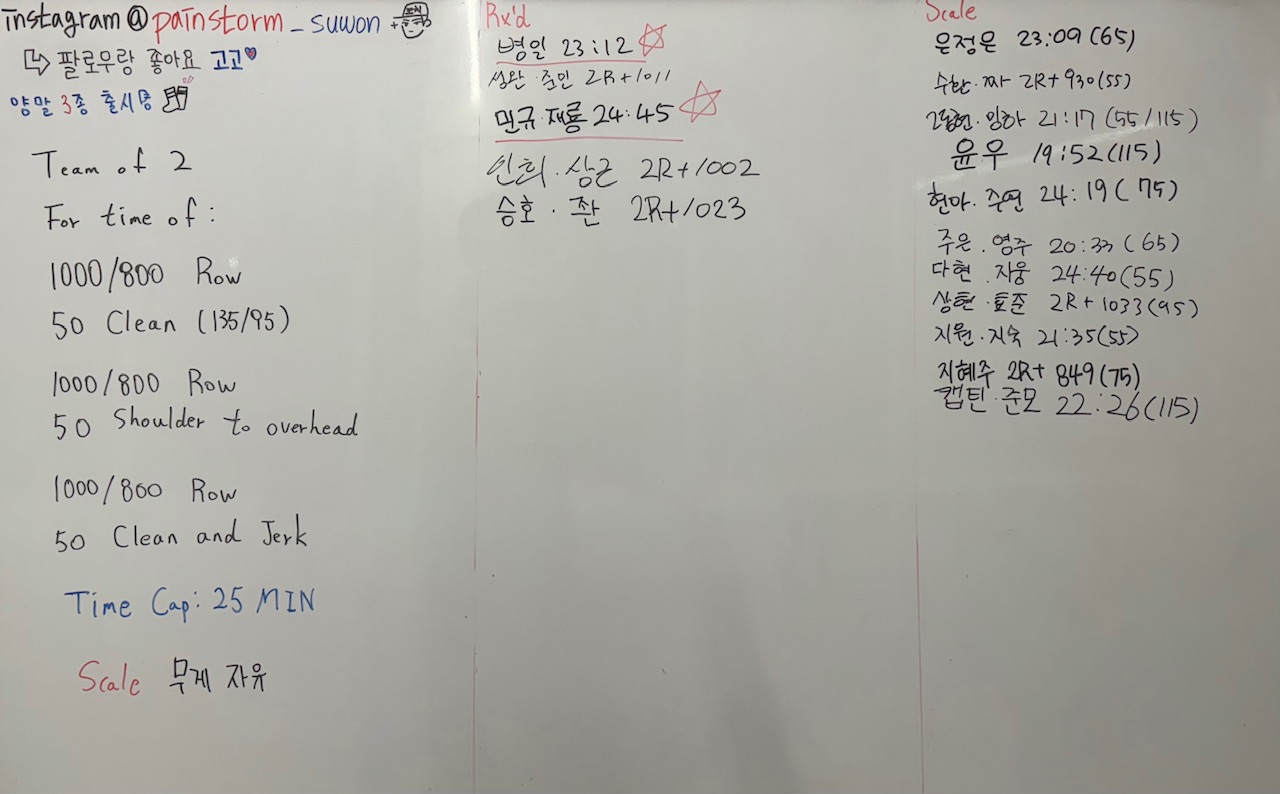 instagram@painstorm_suwon +
팔로우랑 좋아요 고고
양말 3종 출시중
Team of 2
For time of :
1000/800 Row
50 Clean (135/95)
1000/800 Row
50 Shoulder to overhead
1000/800 Row
50 Clean and Jerk
Time Cap: 25 MIN
Scale 무게 자유
Rx'd
병일 23:12
성완·준민 2R+1011
민규·재룡 24:45
인희·상근 2R+1002
승호·쫜 2R+1023
Scale
은정은 23:09 (65)
수환·짜 2R+930(55)
21:17 (55/115)
윤우 19:52(115)
현마·주연 24:19(75)
주은·영주 20:33 (65)
다현·지웅 24:40(55)
상현·효준 2R+1033(95)
지원·지숙 21:35(55)
지혜주 2R+ 849(75)
캡틴·준모 22:26(115)